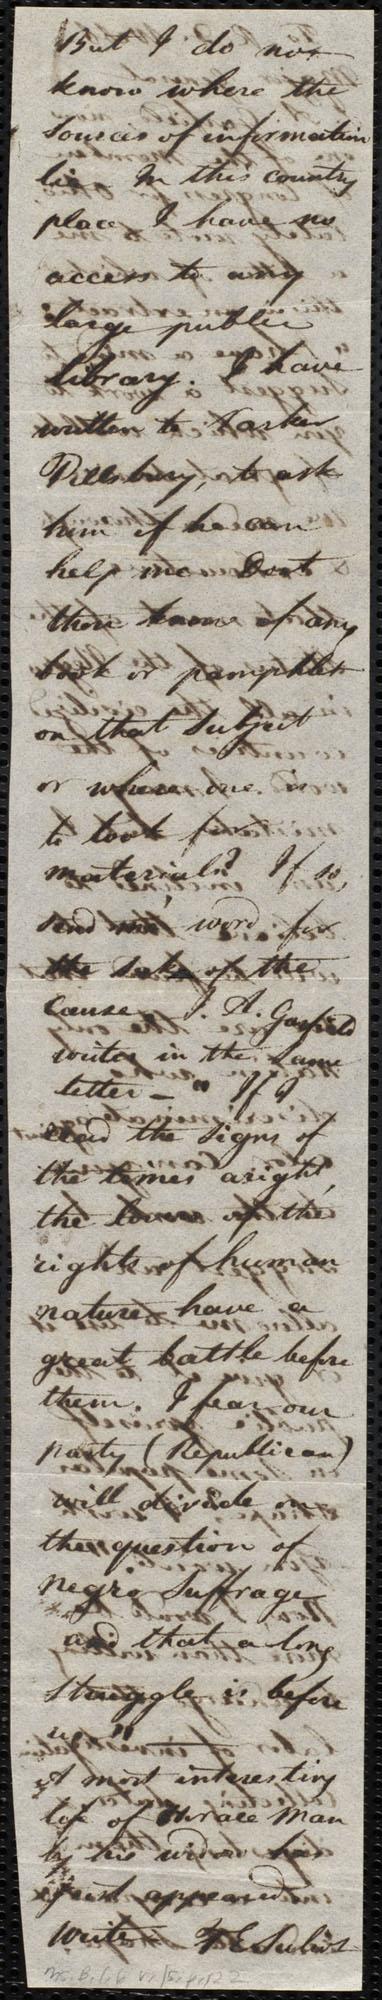 But I do not
know where the
sources of information
lie. In this country
place I have no
access to any
large public
library. I have
written to Parker
Pillsbury, to ask
him if he can
help me Dont
thou know of any
book or pamphlet
on that subject
or where one is
to look for
materials? If so,
send me word for
the sake of the
cause. J. A. Garfield
writes in the same
letter - "If I
read the signs of
the times aright,
the lovers of the
rights of human
nature have a
great battle before
them. I fear our
party (Republican)
will divide on
the question of
negro suffrage
and that a long
struggle is before
us"
A most interesting
life of Horace Man
by his widow has
just appeared
Write